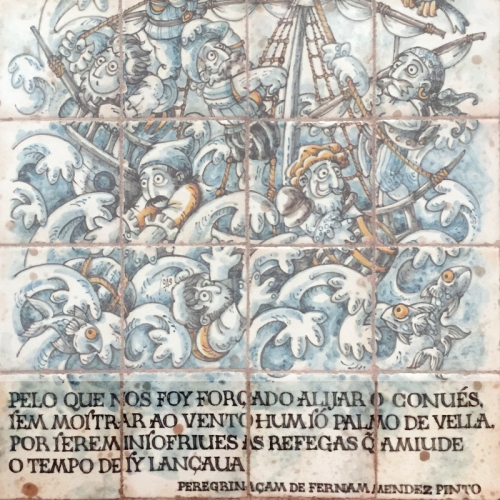 PELO QUE NOS FOY FORÇADO ALIJAR O CONUÉS,
ſEM MOſTRAR AO VENTO HUM ſÓ PALMO DE VELLA,
POR ſEREM INſOFRIUES AS REFEGAS Q̃ AMIUDE
O TEMPO DE ſY LANÇAUA
PEREGRINAÇAM DE FERNAM MENDEZ PINTO